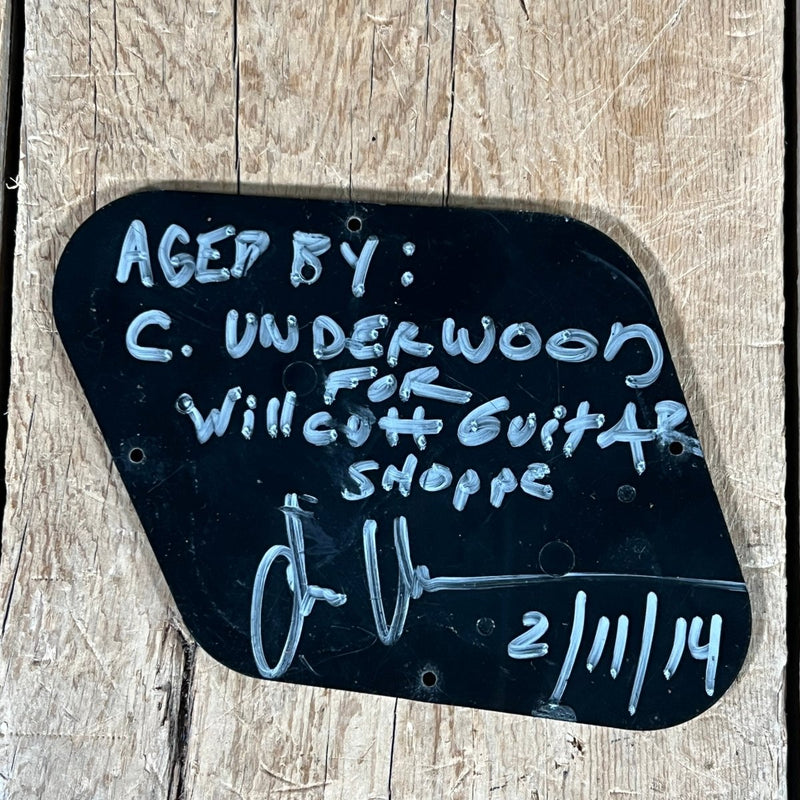 AGED BY:
C. UNDERWOOD
FOR
Willcutt GuitAR
SHOPPE
2/11/14